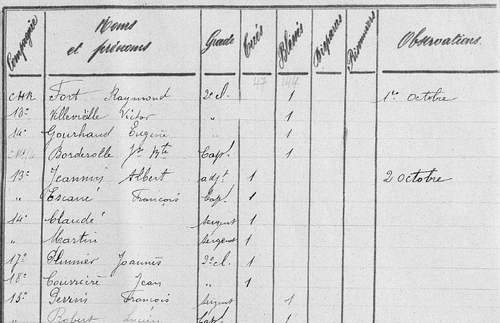 Compagnie Noms et prénoms Grade Tués Blessés Disparus Prisonniers Observations
CHR Fort Raymond 2e cl. 1 1er octobre
13e Villevialle Victor " 1
14e Gourhand Eugène " 1
Borderolle Jn Bte Capl. 1
13e Jeannus Albert adjt 1 2 octobre
" Escané François Capl. 1
14e Claudé Sergent 1
" Martin Sergent 1
17e Plunnier Joannès 2e cl. 1
18e Courrivé Jean " 1
15e Perrin François Sergent 1
" Robert Lucien Capl. 1